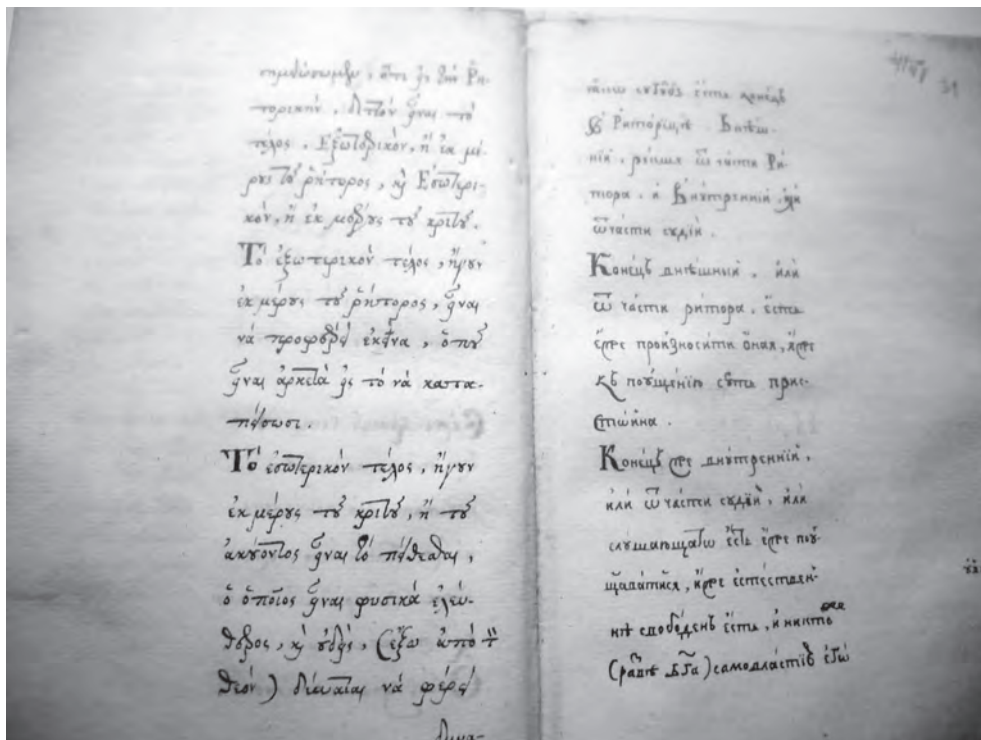 τορικήν. διττόν εἶναι τό
τέλος. Ἐξωτερικόν, ἤ ἐκ μέ-
ρους τοῦ ῥήτορος, καὶ Ἐσωτερι-
κόν, ἤ ἐκ μέρους τοῦ κριτοῦ.
Τό ἐξωτερικόν τέλος, ἤγουν
ἐκ μέρους τοῦ ῥήτορος, εἶναι
νά προσφέρῃ ἐκεῖνα, ὁποῦ
εἶναι ἀρκετά εἰς τό νά κατα-
πείσωσι.
Τό ἐσωτερικόν τέλος, ἤγουν
ἐκ μέρους τοῦ κριτοῦ, ἤ τοῦ
ἀκούοντος εἶναι τό πείθεσθαι,
ὁ ὁποῖος εἶναι φυσικά ἐλεύ-
θερος, καὶ οὐδείς, (ἔξω ἀπό τ
θεόν) δύναται νά φέρῃ
δυνα-
31
есть конецъ
Риторицѣ. Внѣш-
нїй, ѿ части Ри-
тора. и Внутреннїй, или
ѿ части судїи.
Конецъ внѣшнїй, или
ѿ части ритора, есть
еже произносити оная, яже
къ поущенїю суть прис-
стойна.
Конецъ же внутреннїй,
или ѿ части судїи, или
слушающагѡ есть еже поу-
щаватися, иже естествен-
нѣ свободенъ есть, и никто же
(развѣ Бга) самовластїе егѡ